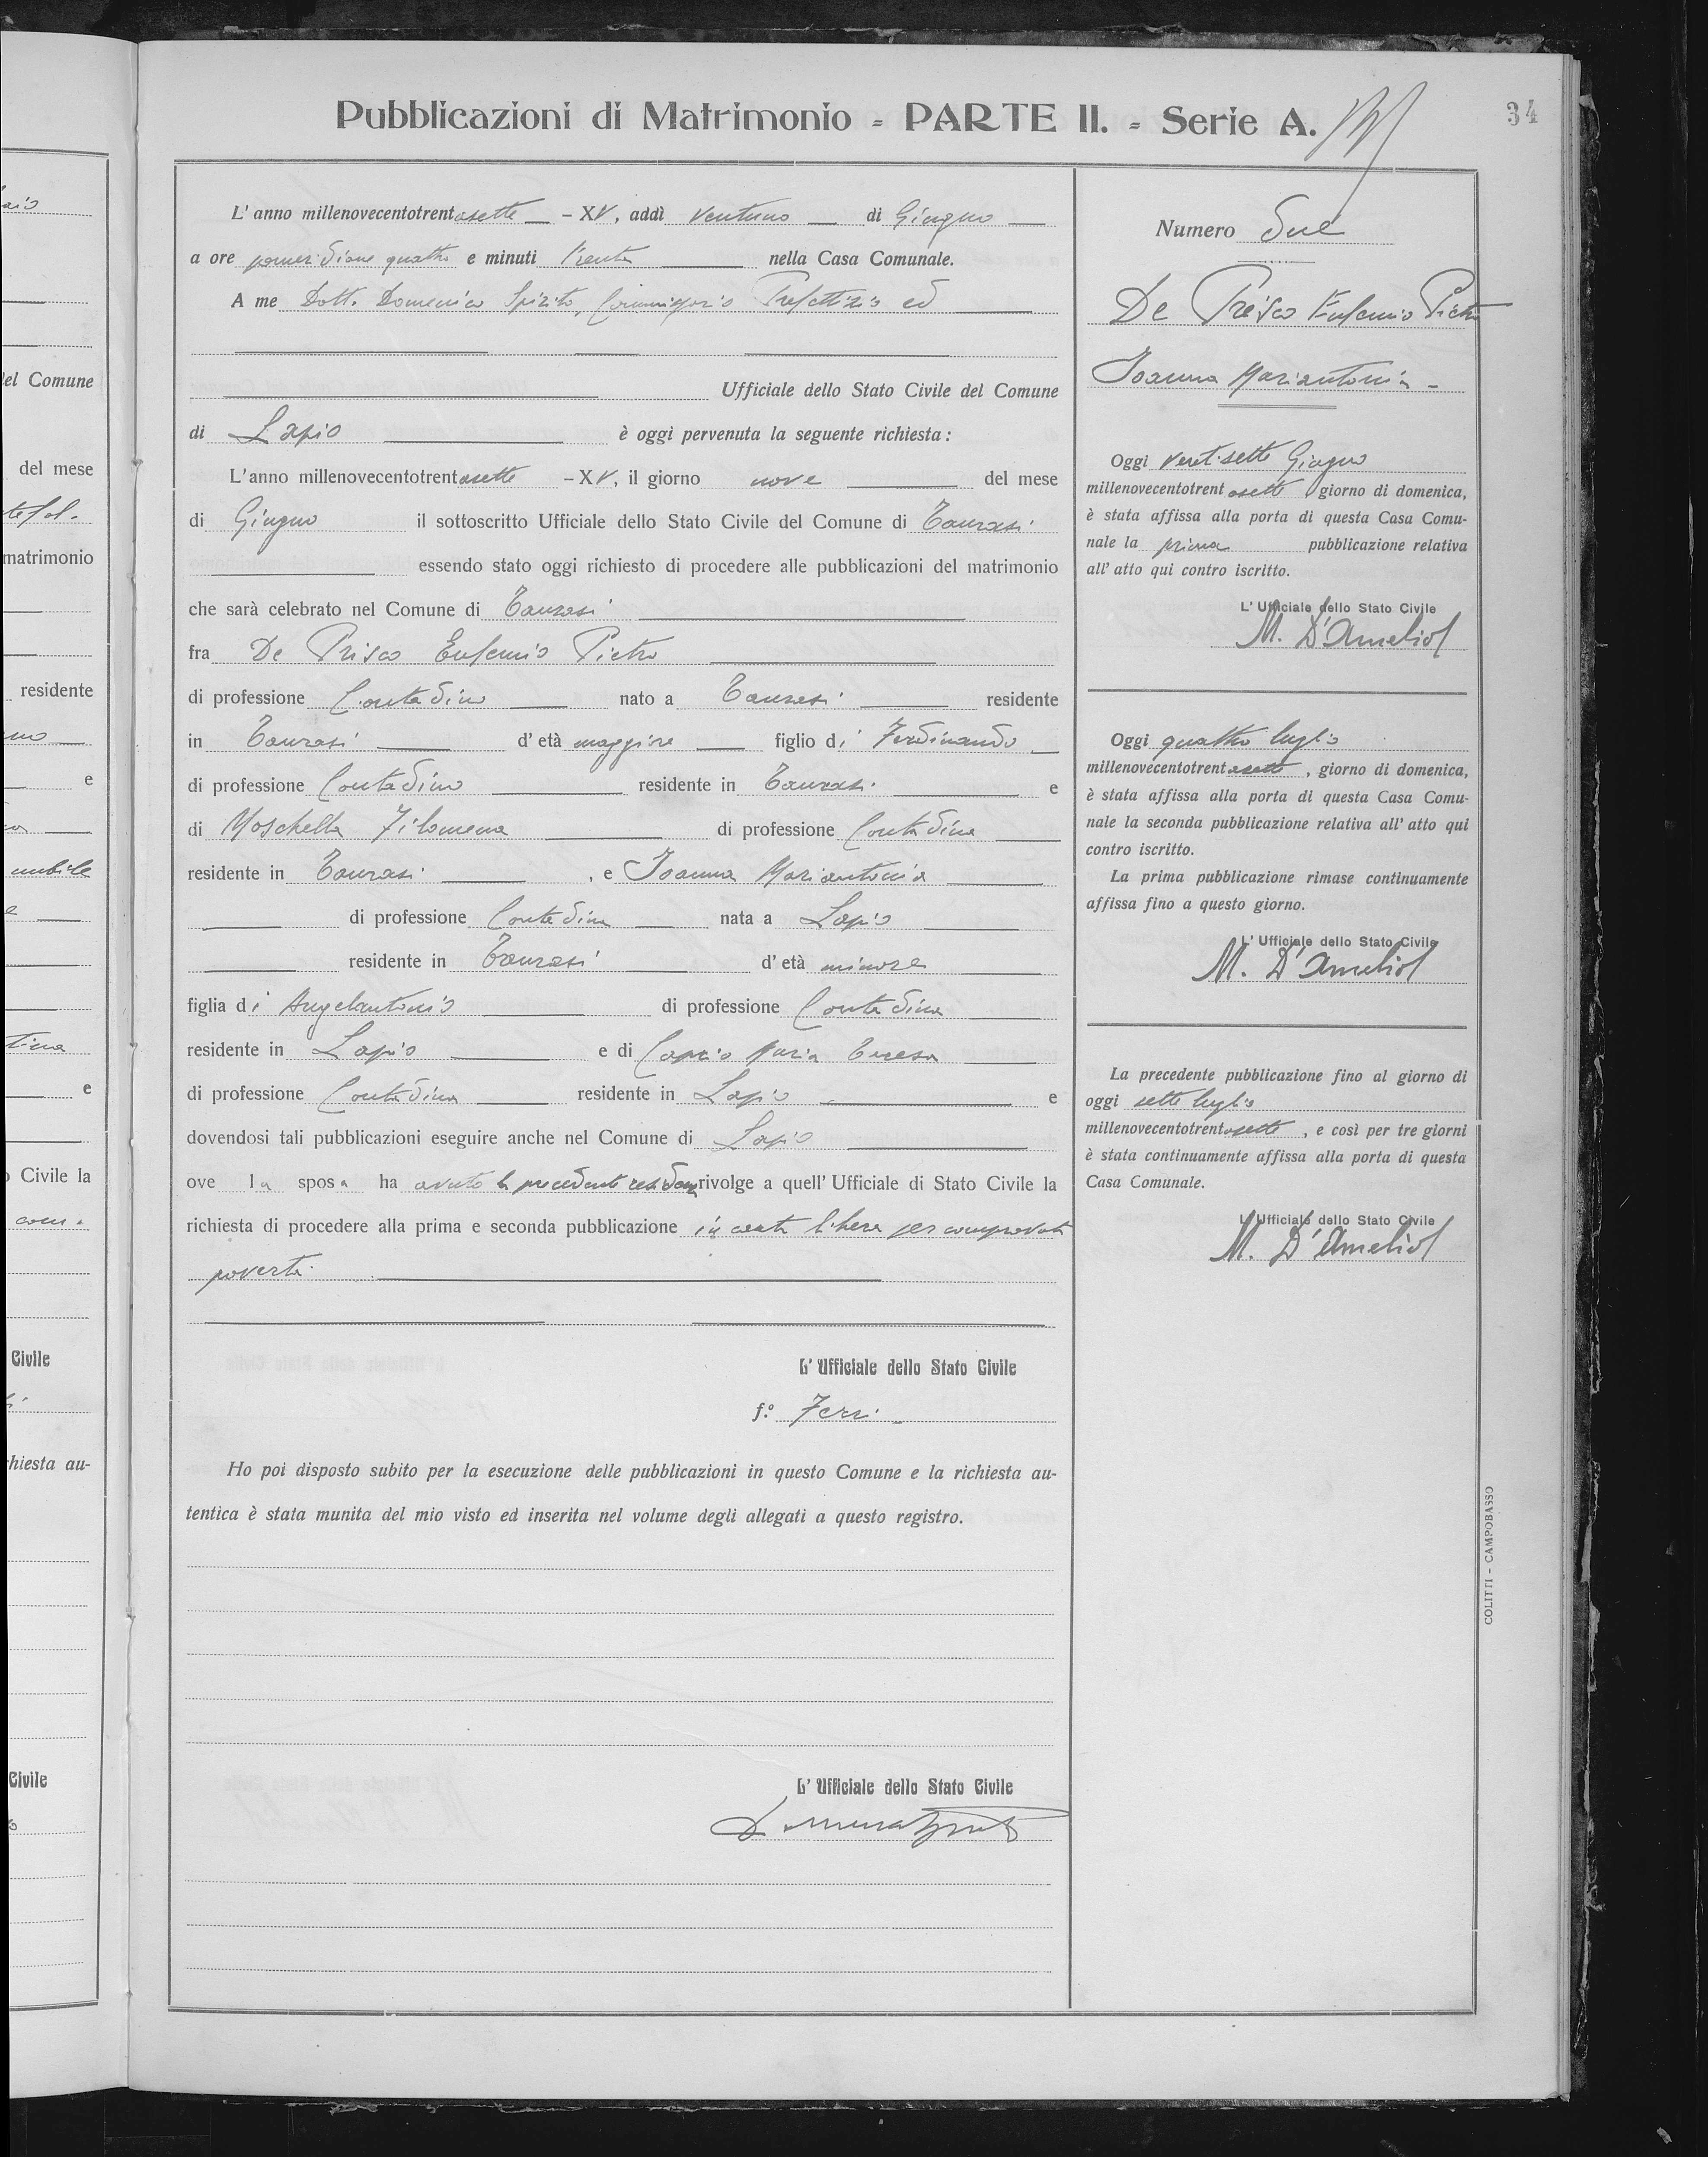 Pubblicazioni di Matrimonio - PARTE II. - Serie A.
34
L' anno millenovecentotrentasette - XV, addì ventuno di Giugno
a ore pomeridiane quattro e minuti trenta nella Casa Comunale.
A me Dott. Domenico Spirito, Commissario Prefettizio ed
Ufficiale dello Stato Civile del Comune
di Lapio è oggi pervenuta la seguente richiesta:
L'anno millenovecentotrentasette - XV, il giorno nove del mese
di Giugno il sottoscritto Ufficiale dello Stato Civile del Comune di Taurasi
essendo stato oggi richiesto di procedere alle pubblicazioni del matrimonio
che sarà celebrato nel Comune di Taurasi
fra De Prisco Eufemio Pietro
di professione Contadino nato a Taurasi residente
in Taurasi d' età maggiore figlio di Ferdinando
di professione Contadino residente in Taurasi e
di Moschella Filomena di professione Contadina
residente in Taurasi, e Ioanna Mariantonia
di professione Contadina nata a Lapio
residente in Taurasi d' età minore
figlia di Angelantonio di professione Contadino
residente in Lapio e di Caprio Maria Teresa
di professione Contadina residente in Lapio e
dovendosi tali pubblicazioni eseguire anche nel Comune di Lapio
ove la sposa ha avuto la precedente residenza rivolge a quell' Ufficiale di Stato Civile la
richiesta di procedere alla prima e seconda pubblicazione in carta libera per comprovata
povertà.
L' Ufficiale dello Stato Civile
f.º Ferri
Ho poi disposto subito per la esecuzione delle pubblicazioni in questo Comune e la richiesta au-
tentica è stata munita del mio visto ed inserita nel volume degli allegati a questo registro.
L' Ufficiale dello Stato Civile
Domenico Spirito
Numero due
De Prisco Eufemio Pietro
Ioanna Mariantonia
Oggi ventisette Giugno
millenovecentotrentasette giorno di domenica,
è stata affissa alla porta di questa Casa Comu-
nale la prima pubblicazione relativa
all' atto qui contro iscritto.
L' Ufficiale dello Stato Civile
M. D'Ameliof
Oggi quattro luglio
millenovecentotrentasette, giorno di domenica,
è stata affissa alla porta di questa Casa Comu-
nale la seconda pubblicazione relativa all' atto qui
contro iscritto.
La prima pubblicazione rimase continuamente
affissa fino a questo giorno.
L' Ufficiale dello Stato Civile
M. D'Ameliof
La precedente pubblicazione fino al giorno di
oggi sette luglio
millenovecentotrentasette, e così per tre giorni
è stata continuamente affissa alla porta di questa
Casa Comunale.
L' Ufficiale dello Stato Civile
M. D'Ameliof
COLITTI - CAMPOBASSO
del Comune
del mese
matrimonio
residente
e
nubile
e
Civile la
Civile
Civile